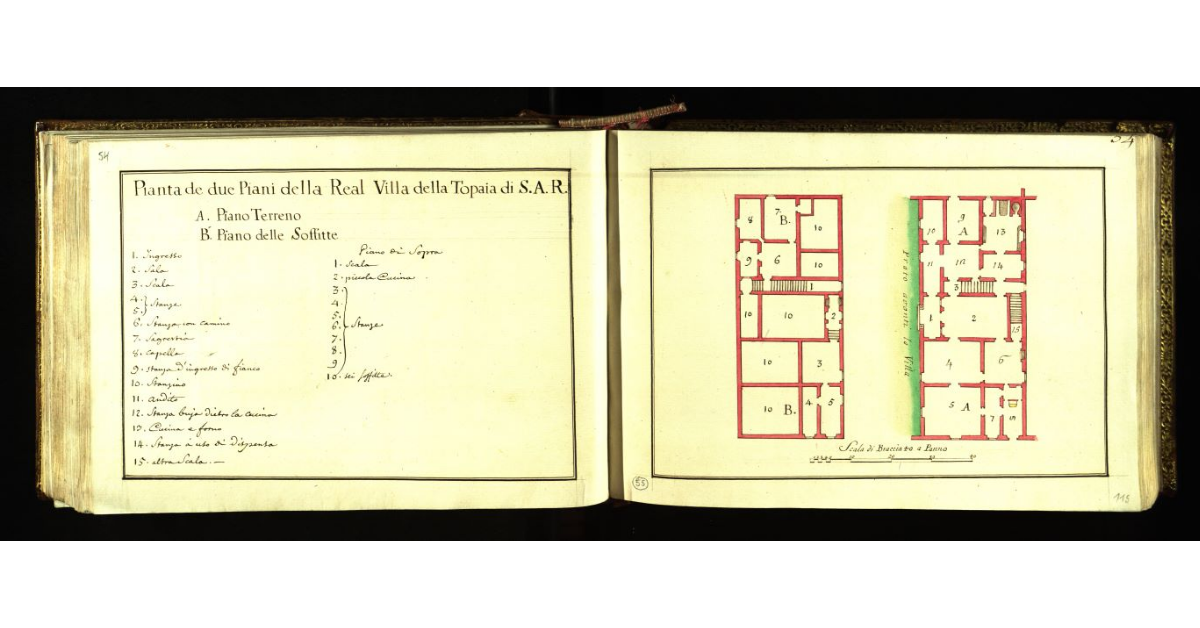 54
Pianta de due Piani della Real Villa della Topaia di S.A.R.
A. Piano Terreno
B. Piano delle Soffitte
1. Ingresso
2. Sala
3. Scala
4.
5. Stanze
6. Stanza con camino
7. Sagrestia
8. Capella
9. Stanza d'ingresso di fianco
10. Stanzino
11. Andito
12. Stanza buja dietro la cucina
13. Cucina e forno
14. Stanza à uso di dispensa
15. altra Scala.
Piano di Sopra
1. Scala
2. piccola Cucina
3.
4.
5.
6. Stanze
7.
8.
9
10. sei soffitte
54
8
7.
B.
10
9
6
10
1
10
10
2
10
3
10
B.
4
5
Prato avanti la Villa
10
9
A
13
11
14
3
1
2
15
4
6
5
A
7
8
Scala di Braccia 40 a Panno
55
115